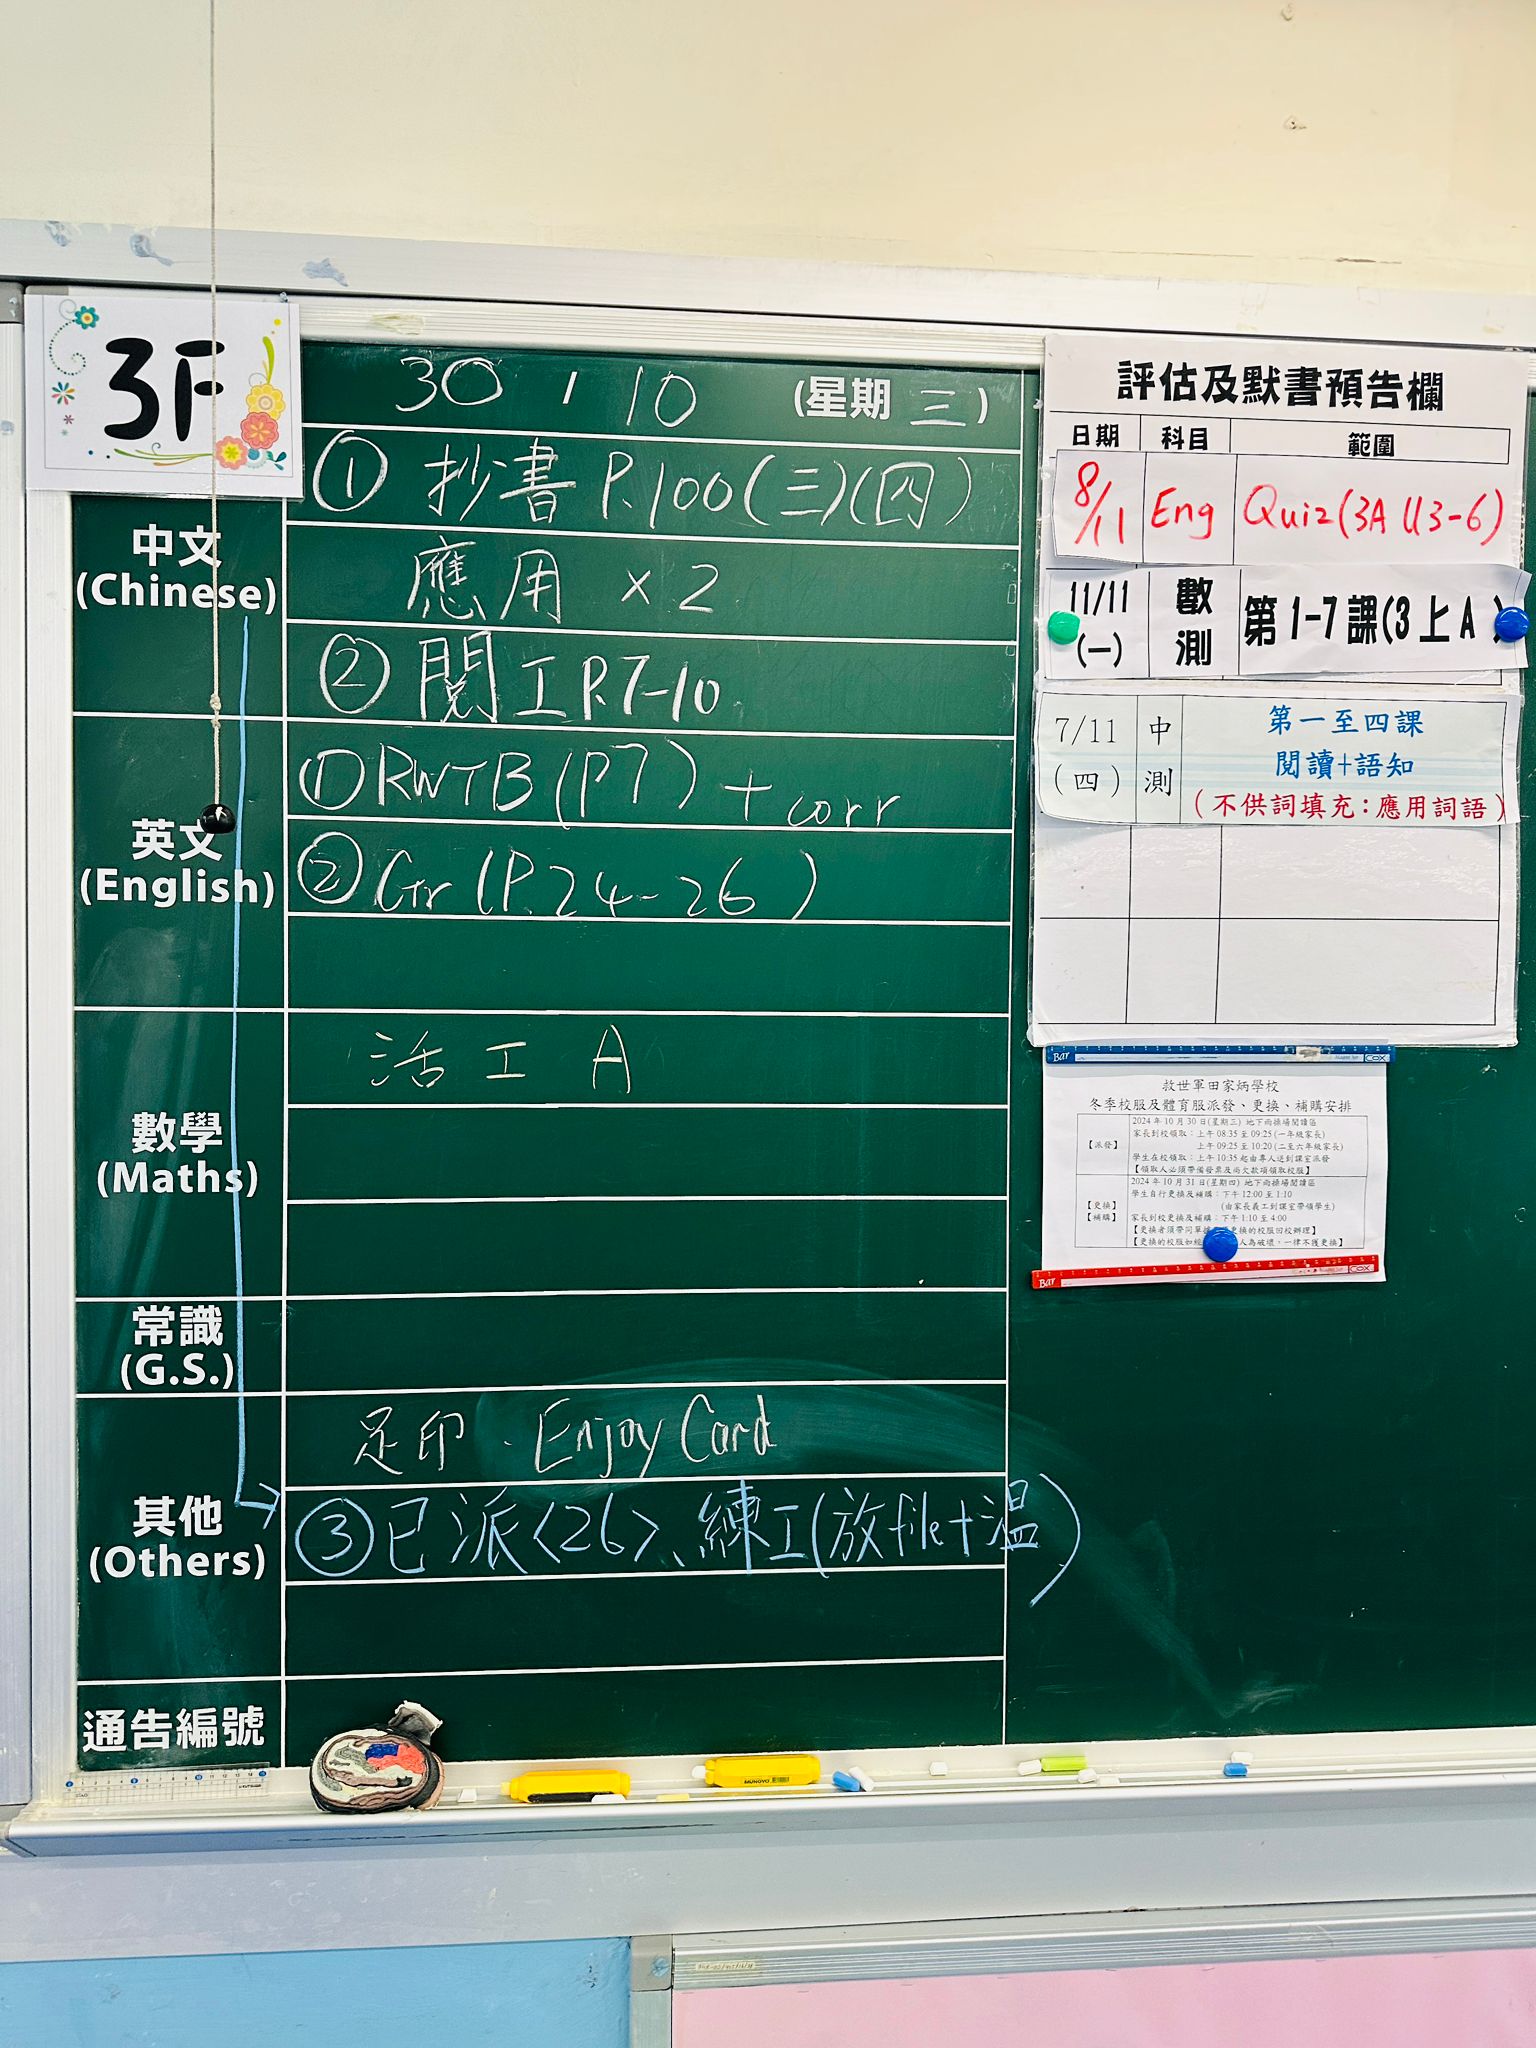 3F
30 / 10 (星期 三)
中文
(Chinese)
① 抄書 P.100(三)(四)
應用 × 2
② 閱工 P.7-10
英文
(English)
① RWTB (P7) + corr
② Gr (P.24-26)
數學
(Maths)
活工 A
常識
(G.S.)
其他
(Others)
足印、Enjoy Card
③ 已派<26>、練工(放file+溫)
通告編號
評估及默書預告欄
日期 科目 範圍
8/11 Eng Quiz(3A U3-6)
11/11 (一) 數測 第1-7課(3上A)
7/11 (四) 中測 第一至四課
閱讀+語知
(不供詞填充:應用詞語)
Bar COX
救世軍田家炳學校
冬季校服及體育服派發、更換、補購安排
【派發】
2024 年 10 月 30 日(星期三) 地下雨操場閱讀區
家長到校領取:上午 08:35 至 09:25 (一年級家長)
上午 09:25 至 10:20 (二至六年級家長)
學生在校領取:上午 10:35 起由專人送到課室派發
【領取人必須帶備發票及尚欠款項領取校服】
【更換】
【補購】
2024 年 10 月 31 日(星期四) 地下雨操場閱讀區
學生自行更換及補購:下午 12:00 至 1:10
(由家長義工到課室帶領學生)
家長到校更換及補購:下午 1:10 至 4:00
【更換者須帶同單據 更換的校服回校辦理】
【更換的校服如經 人為破壞,一律不獲更換】
Bar COX
MUNGYO